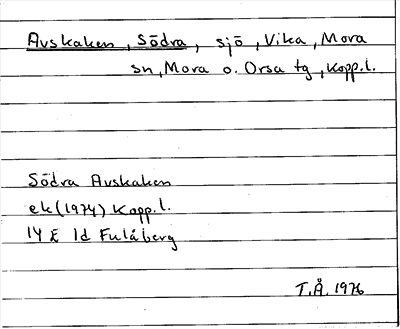 Avskaken, Södra, sjö, Vika, Mora
sn, Mora o. Orsa tg, Kopp.l.
Södra Avskaken
ek (1974) Kopp.l.
14 E 1d Fulåberg
T.Å. 1976